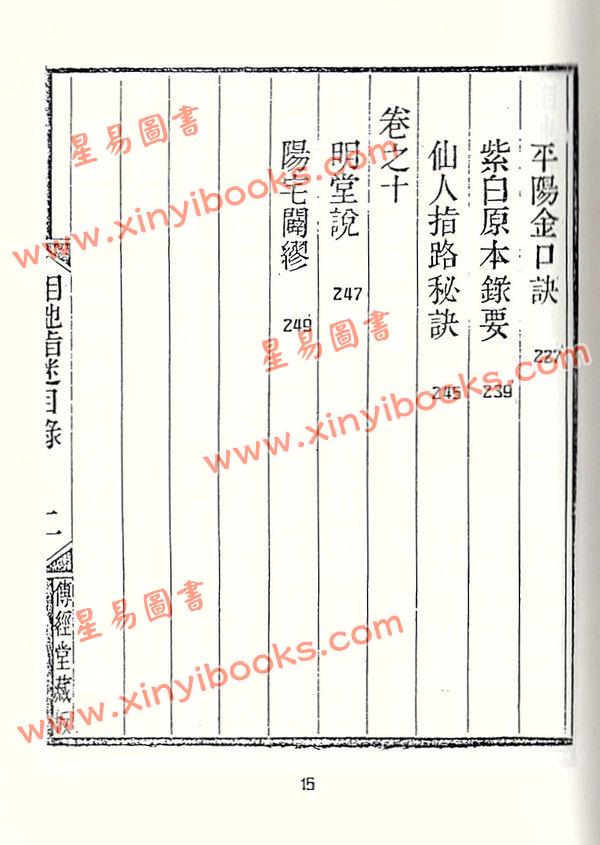 平陽金口訣 227
紫白原本錄要 239
仙人指路秘訣 245
卷之十
明堂說 247
陽宅闢繆 249
相地指迷目錄
二
傳經堂藏板
15
星易圖書
www.xinyibooks.com
星易圖書
www.xinyibooks.com
星易圖書
www.xinyibooks.com